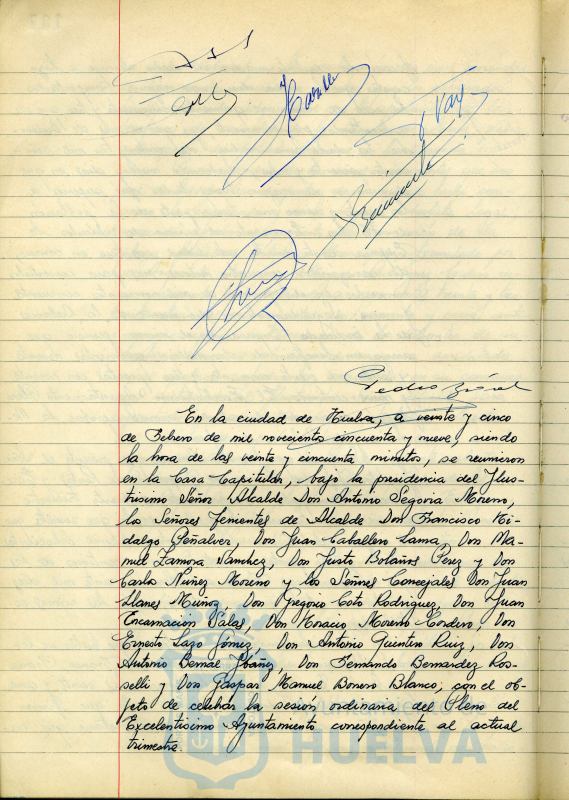 Pedro
En la ciudad de Huelva, a veinte y cinco
de Febrero de mil novecientos cincuenta y nueve, siendo
la hora de las veinte y cincuenta minutos, se reunieron
en la Casa Capitular, bajo la presidencia del Ylus-
trisimo Señor Alcalde Don Antonio Segovia Moreno,
los Señores Tenientes de Alcalde Don Francisco Hi-
dalgo Peñalver, Don Juan Caballero Lama, Don Ma-
nuel Zamora Sanchez, Don Justo Bolaños Perez y Don
Carlos Nuñez Moreno y los Señores Concejales Don Juan
Llanes Muñoz, Don Gregorio Coto Rodriguez, Don Juan
Encarnacion Salas, Don Horacio Moreno Cordero, Don
Ernesto Lazo Gomez, Don Antonio Quintero Ruiz, Don
Antonio Bernal Ybañez, Don Fernando Bernardez Ros-
selli y Don Gaspar Manuel Bonero Blanco; con el ob-
jeto de celebrar la sesion ordinaria del Pleno del
Excelentisimo Ayuntamiento correspondiente al actual
trimestre.
HUELVA